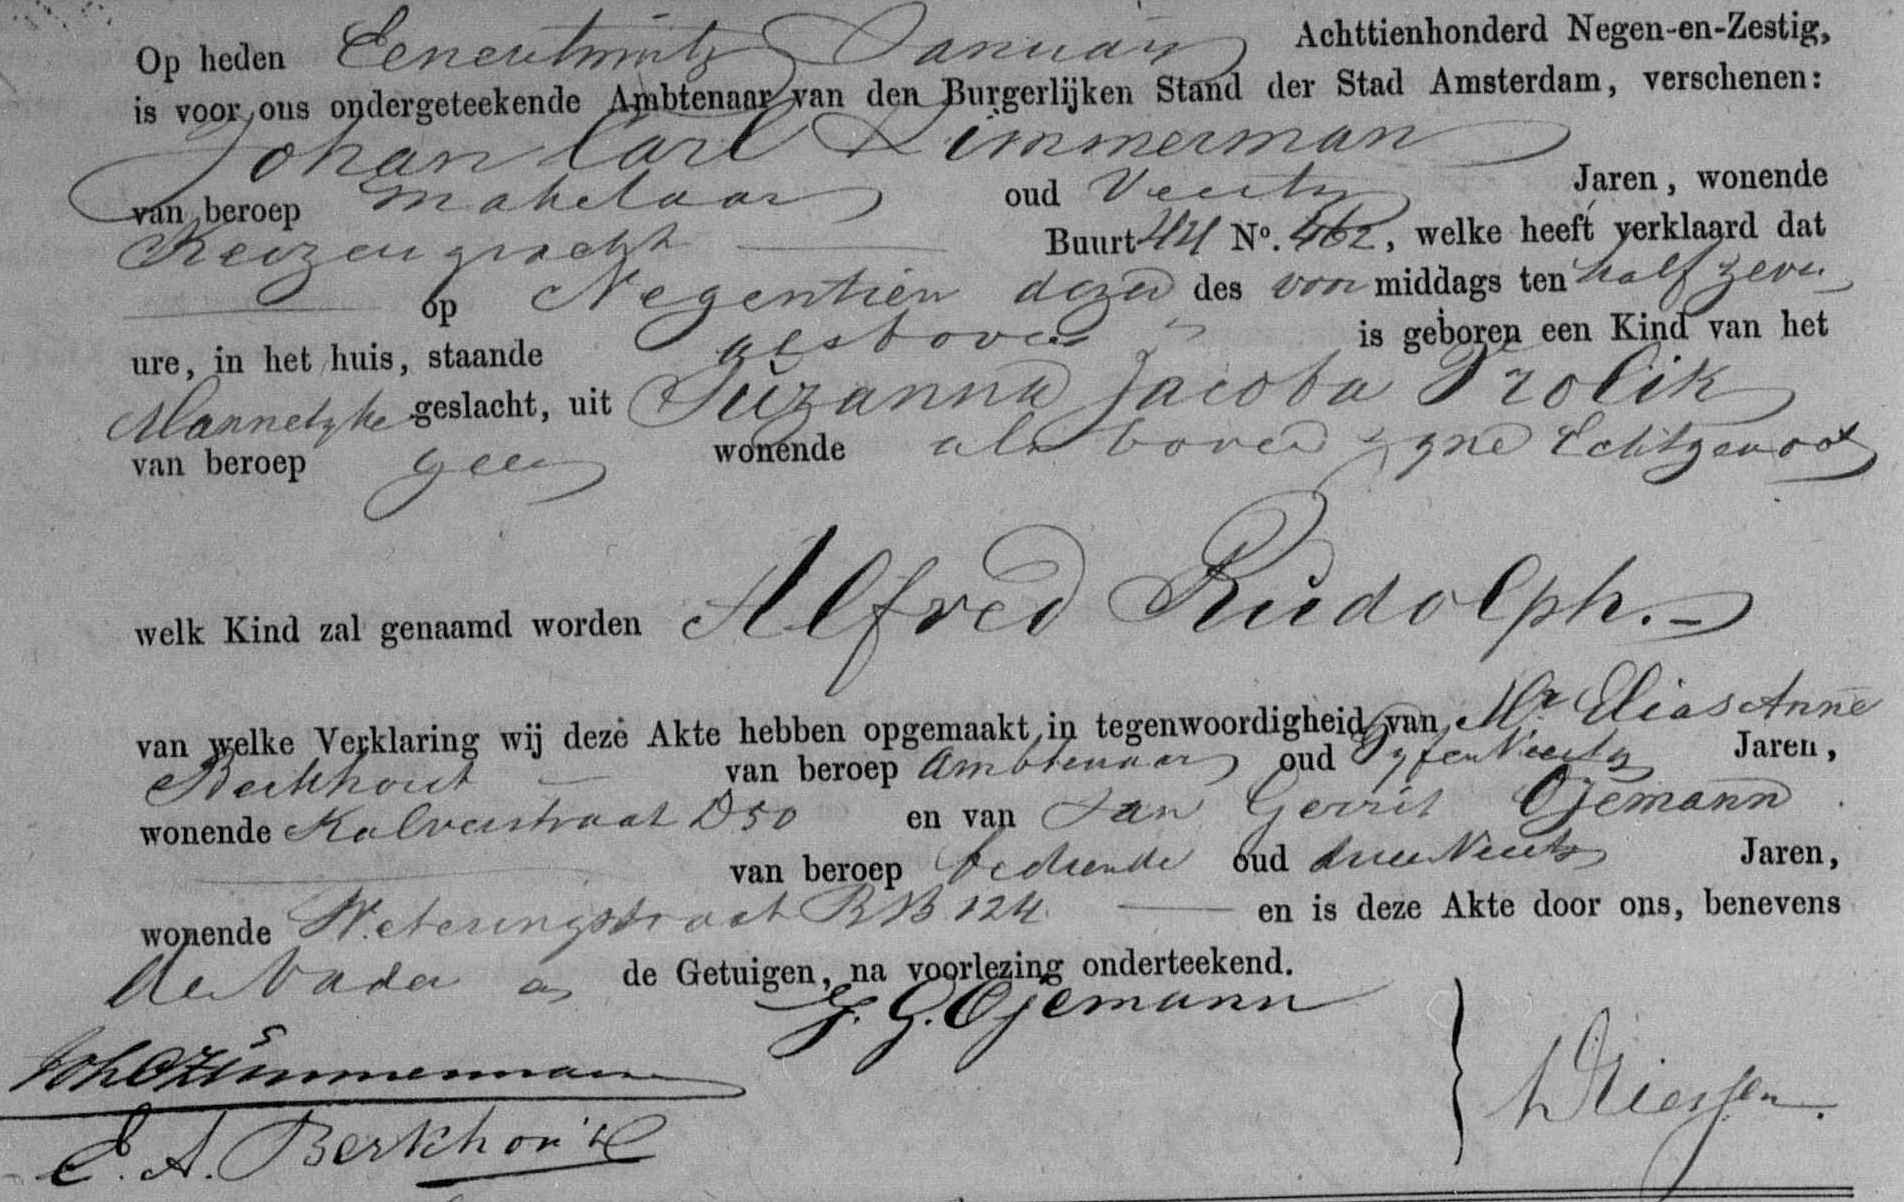 Op heden Eenentwintig Januarij Achttienhonderd Negen-en-Zestig,
is voor ons ondergeteekende Ambtenaar van den Burgerlijken Stand der Stad Amsterdam, verschenen:
Johan Carl Zimmerman
van beroep Makelaar oud Veertig Jaren, wonende
Keizersgracht Buurt 44 No. 462, welke heeft verklaard dat
op Negentien dezer des voor middags ten half zeven
ure, in het huis, staande als boven is geboren een Kind van het
Mannelyke geslacht, uit Suzanna Jacoba Trolik
van beroep geen wonende als boven zyne Echtgenoot
welk Kind zal genaamd worden Alfred Rudolph.
van welke Verklaring wij deze Akte hebben opgemaakt in tegenwoordigheid van Mr Elias Anne
Berkhout van beroep Ambtenaar oud Vyfenveertig Jaren,
wonende Kalverstraat D 50 en van Jan Gerrit Ojemann
van beroep bediende oud drieenveertig Jaren,
wonende Weteringstraat BB 124 en is deze Akte door ons, benevens
den Vader en de Getuigen, na voorlezing onderteekend.
J. G. Ojemann
Joh C Zimmerman
E. A. Berkhout